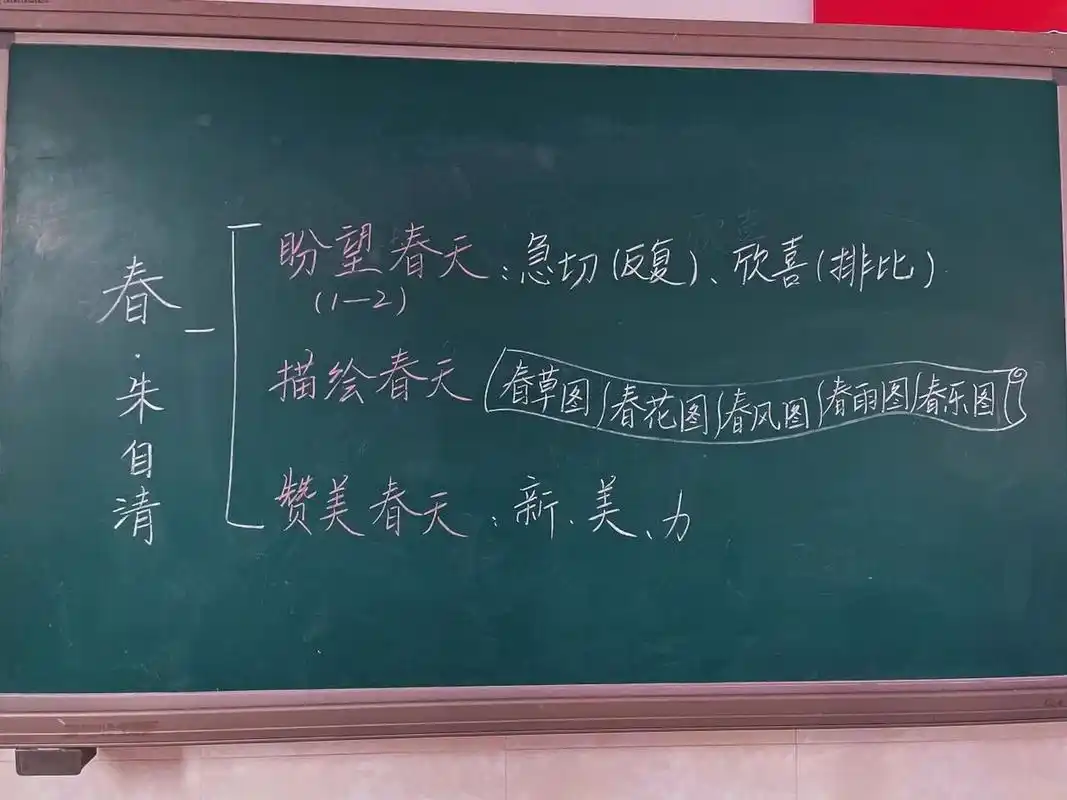 春
·朱自清
盼望春天:急切(反复)、欣喜(排比)
(1—2)
描绘春天 春草图 春花图 春风图 春雨图 春乐图
赞美春天:新、美、力